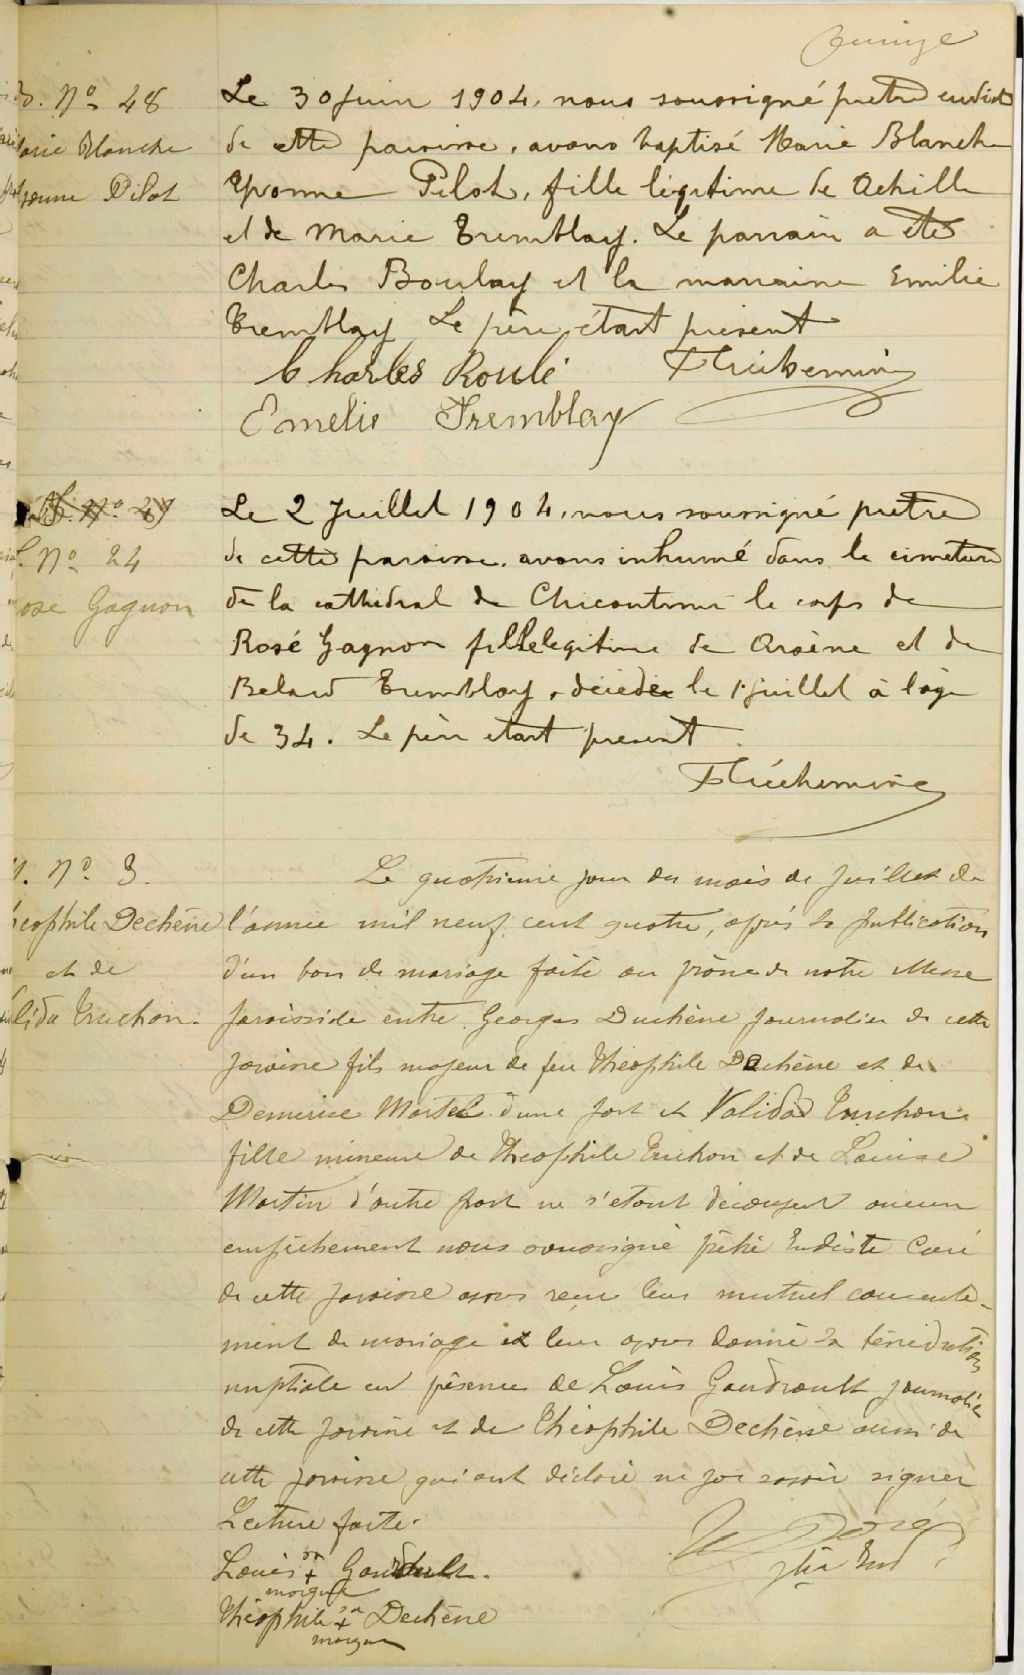 quinze
B. No 48
Marie Blanche
Yvonne Pilot
Le 30 Juin 1904, nous soussigné prêtre eudiste
de cette paroisse, avons baptisé Marie Blanche
Yvonne Pilot, fille légitime de Achille
et de Marie Tremblay. Le parrain a été
Charles Boulay et la marraine Emilie
Tremblay Le père étant présent
Charles Roulé
Emelie Tremblay
No 24
Rose Gagnon
Le 2 Juillet 1904, nous soussigné prêtre
de cette paroisse, avons inhumé dans le cimetière
de la cathédral de Chicoutimi le corps de
Rosé Gagnon fille legitime de Arsène et de
Tremblay, décédée le 1 juillet à l'âge
de 34. Le père etant present
M. No 3.
Théophile Dechêne
et de
Valida Truchon.
Le quatrième jour du mois de Juillet de
l'année mil neuf cent quatre, après la publication
d'un ban de mariage faite au prône de notre Messe
paroissiale entre Georges Duchène journalier de cette
paroisse fils majeur de feu Théophile Dechêne et de
Demerise Martel d'une part et Valida Truchon
fille mineure de Théophile Truchon et de Louise
Martin d'autre part ne s'etant découvert aucun
empêchement nous soussigné prêtre Eudiste Curé
de cette paroisse avons reçu leur mutuel consente-
ment de mariage et leur avons donné la bénédiction
nuptiale en présence de Louis Gaudreault journalier
de cette paroisse et de Théophile Dechêne aussi de
cette paroisse qui ont déclaré ne pas savoir signer
Lecture faite.
Louis sa + Gaudreault.
marque
Théophile sa + Dechêne
marque